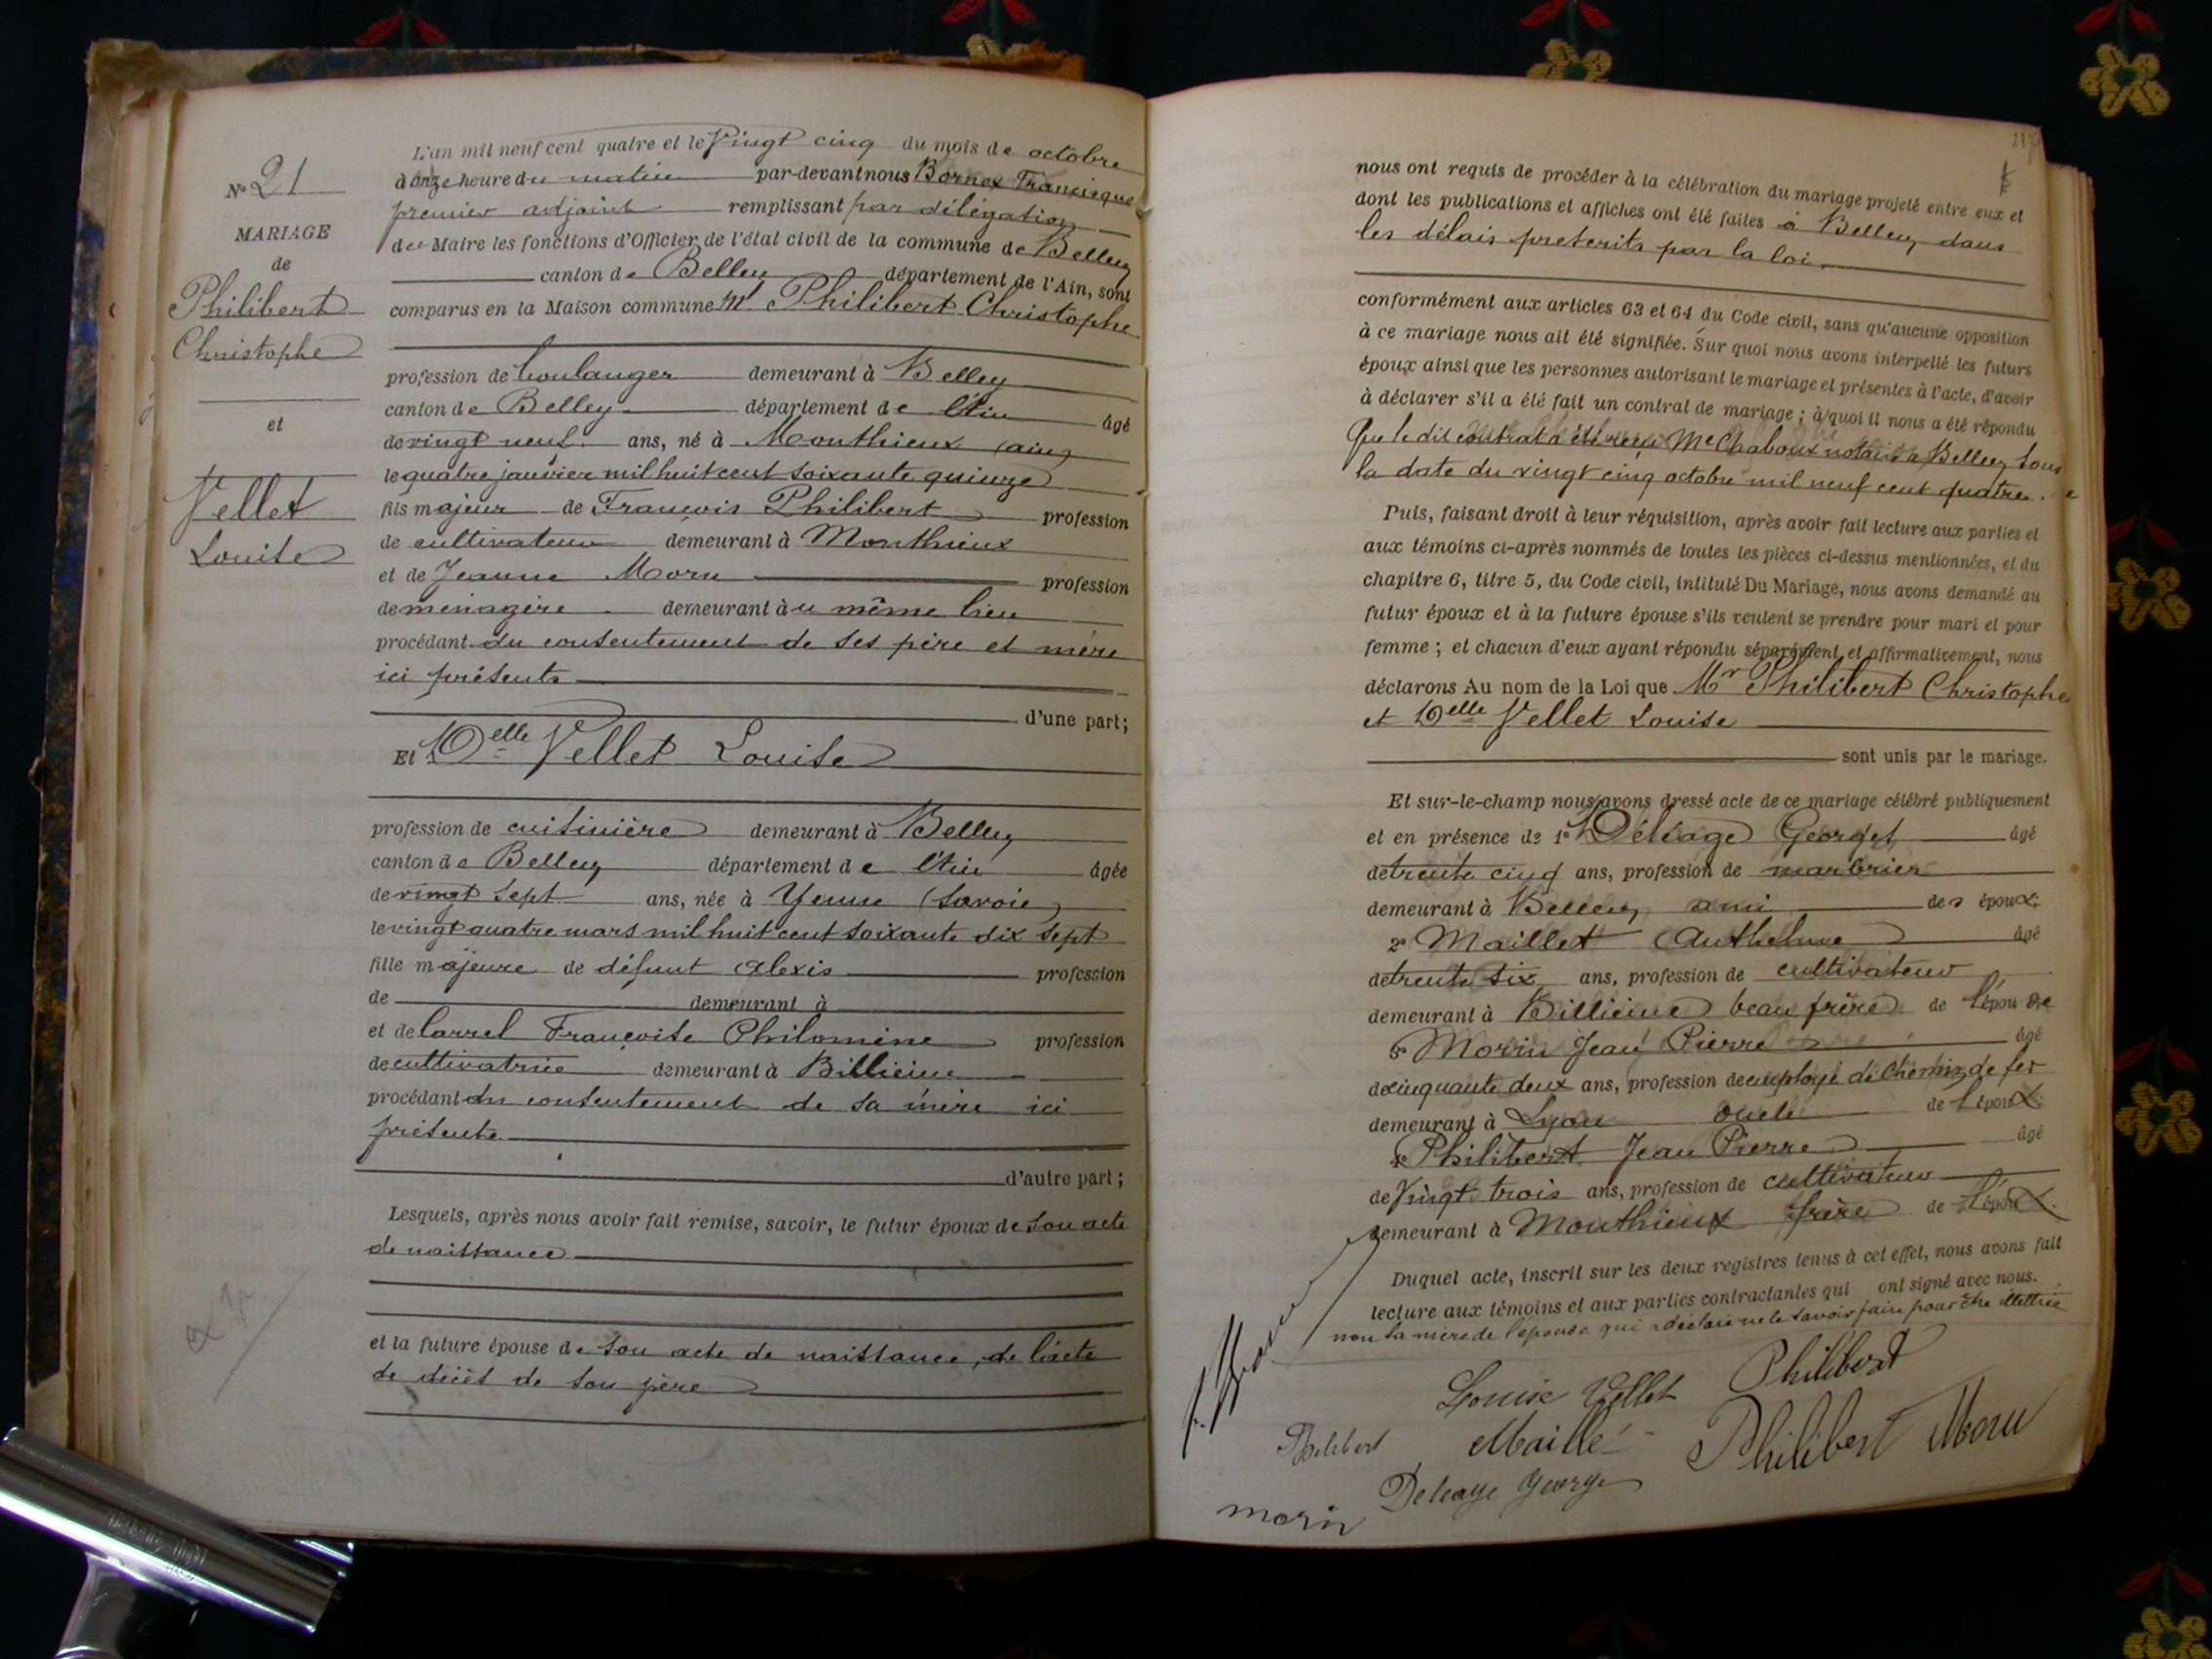 N° 21
MARIAGE
de
Philibert
Christophe
et
Vellet
Louise
L'an mil neuf cent quatre et le Vingt cinq du mois de octobre
à onze heure du matin par-devant nous Bornex Francisque
premier adjoint remplissant par délégation
du Maire les fonctions d'Officier de l'état civil de la commune de Belley
canton de Belley département de l'Ain, sont
comparus en la Maison commune Mr Philibert Christophe
profession de boulanger demeurant à Belley
canton de Belley département de l'Ain âgé
de vingt neuf ans, né à Monthieux (ain)
le quatre janvier mil huit cent soixante quinze
fils majeur de François Philibert profession
de cultivateur demeurant à Monthieux
et de Jeanne Moru profession
de ménagère demeurant à u même lieu
procédant du consentement de ses père et mère
ici présents
d'une part;
Et Delle Vellet Louise
profession de cuisinière demeurant à Belley
canton de Belley département de l'Ain âgée
de vingt sept ans, née à Yenne (Savoie)
le vingt quatre mars mil huit cent soixante dix sept
fille majeure de défunt Alexis profession
de demeurant à
et de Carrel Françoise Philomène profession
de cultivatrice demeurant à Billième
procédant du consentement de sa mère ici
présente
d'autre part;
Lesquels, après nous avoir fait remise, savoir, le futur époux de son acte
de naissance
et la future épouse de son acte de naissance, de l'acte
de décès de son père
nous ont requis de procéder à la célébration du mariage projeté entre eux et
dont les publications et affiches ont été faites à Belley dans
les délais prescrits par la loi.
conformément aux articles 63 et 64 du Code civil, sans qu'aucune opposition
à ce mariage nous ait été signifiée. Sur quoi nous avons interpellé les futurs
époux ainsi que les personnes autorisant le mariage et présentes à l'acte, d'avoir
à déclarer s'il a été fait un contrat de mariage; à quoi il nous a été répondu
Que le dit contrat a été reçu Me Chaboux notaire à Belley sous
la date du vingt cinq octobre mil neuf cent quatre.
Puis, faisant droit à leur réquisition, après avoir fait lecture aux parties et
aux témoins ci-après nommés de toutes les pièces ci-dessus mentionnées, et du
chapitre 6, titre 5, du Code civil, intitulé Du Mariage, nous avons demandé au
futur époux et à la future épouse s'ils veulent se prendre pour mari et pour
femme; et chacun d'eux ayant répondu séparément et affirmativement, nous
déclarons Au nom de la Loi que Mr Philibert Christophe
et Delle Vellet Louise
sont unis par le mariage.
Et sur-le-champ nous avons dressé acte de ce mariage célébré publiquement
et en présence de 1° Déléage Georges âgé
de trente cinq ans, profession de marbrier
demeurant à Belley ami des époux
2° Maillet Anthelme âgé
de trente six ans, profession de cultivateur
demeurant à Billième beau frère de l'épouse
3° Morin Jean Pierre âgé
de cinquante deux ans, profession de employé de Chemin de fer
demeurant à Lyon oncle de l'époux
4° Philibert Jean Pierre âgé
de Vingt trois ans, profession de cultivateur
demeurant à Monthieux frère de l'époux
Duquel acte, inscrit sur les deux registres tenus à cet effet, nous avons fait
lecture aux témoins et aux parties contractantes qui ont signé avec nous.
non la mère de l'épouse qui a déclaré ne le savoir faire pour être illettrée
Louise Vellet Philibert
Philibert Maillé Philibert Moru
Deleage George
morin